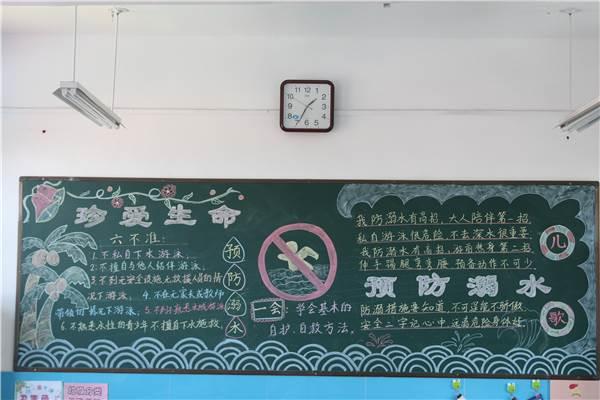 12
1
2
3
4
5
6
7
8
9
10
11
珍爱生命
六不准:
1.不私自下水游泳,
2.不擅自与他人结伴游泳,
3.不到无安全设施无救援人员的情
况下游泳,4.不在无家长或教师
带领切情况下游泳,5.不到不熟悉水域游泳
6.不熟悉水性的青少年不擅自下水施救。
预防溺水
一会:学会基本的
自护、自救方法。
我防溺水有高招,大人陪伴第一招,
私自游泳很危险,不去深水很重要
我防溺水有高招,游前热身第二招
伸手踢腿弯弯腰,预备动作不可少
预防溺水
防溺措施要知道,不可逞能不骄傲
安全二字记心中,远离危险身体好
儿歌